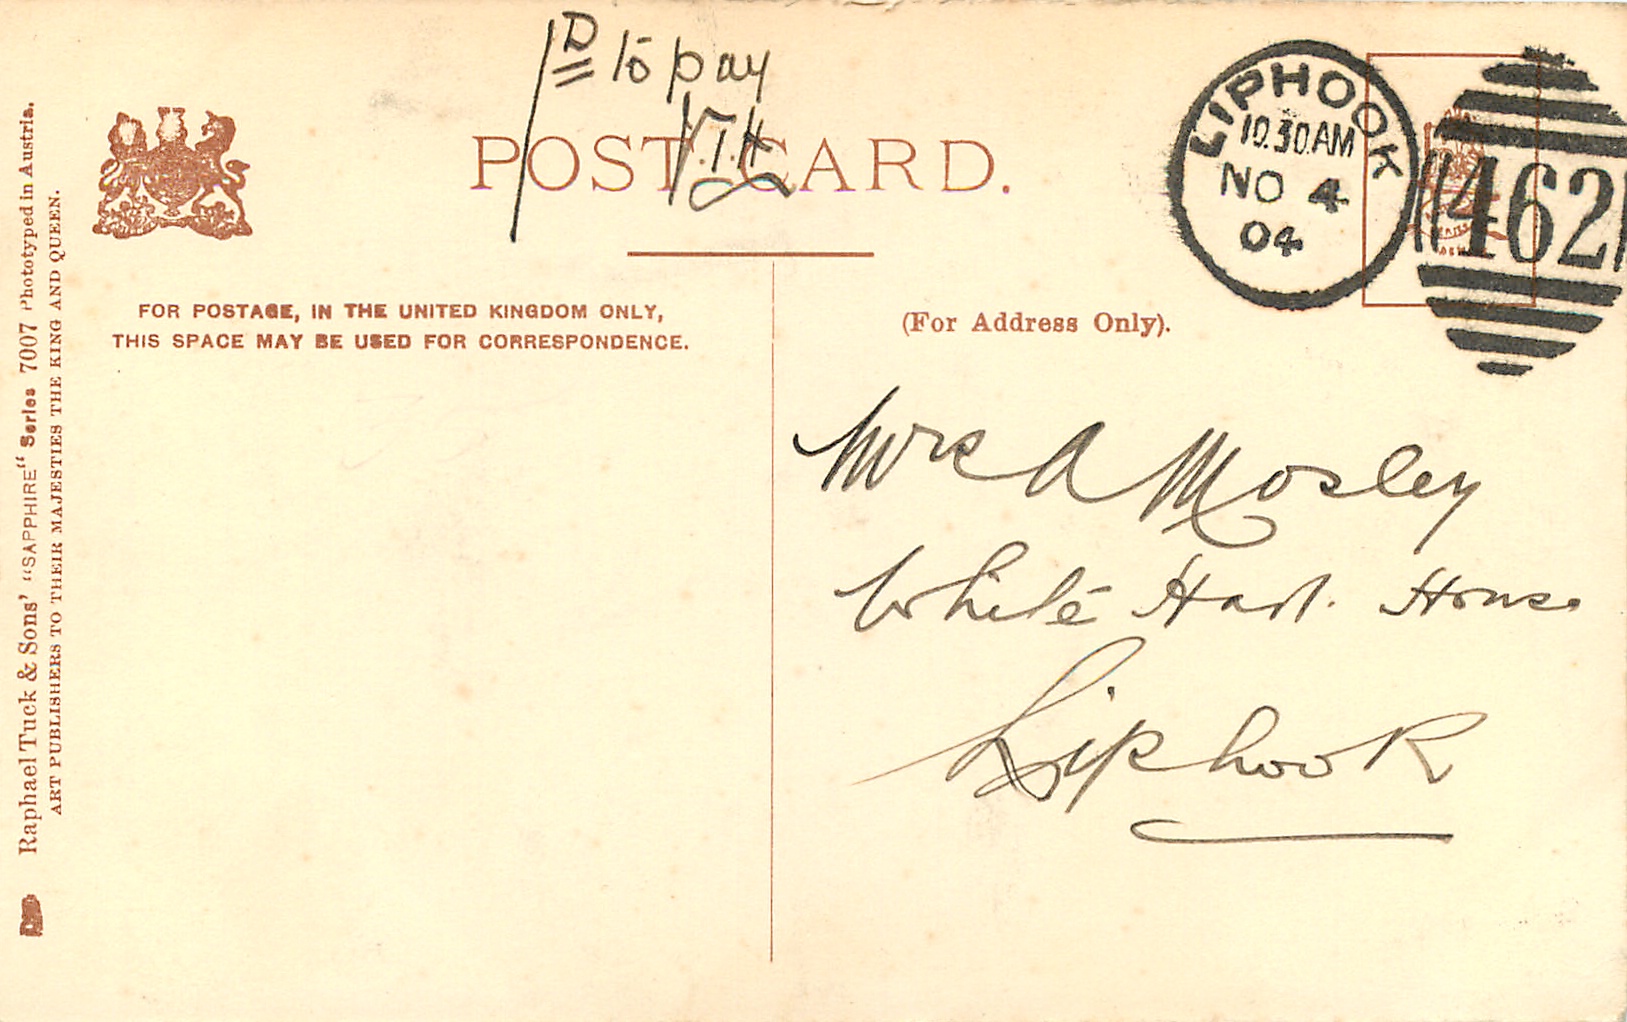 1D to pay
POST CARD.
LIPHOOK
10.30.AM
NO 4
04
462
FOR POSTAGE, IN THE UNITED KINGDOM ONLY,
THIS SPACE MAY BE USED FOR CORRESPONDENCE.
(For Address Only).
Mrs A Mosley
White Hart. House
Liphook
Raphael Tuck & Sons' "SAPPHIRE" Series 7007 Phototyped in Austria.
ART PUBLISHERS TO THEIR MAJESTIES THE KING AND QUEEN.